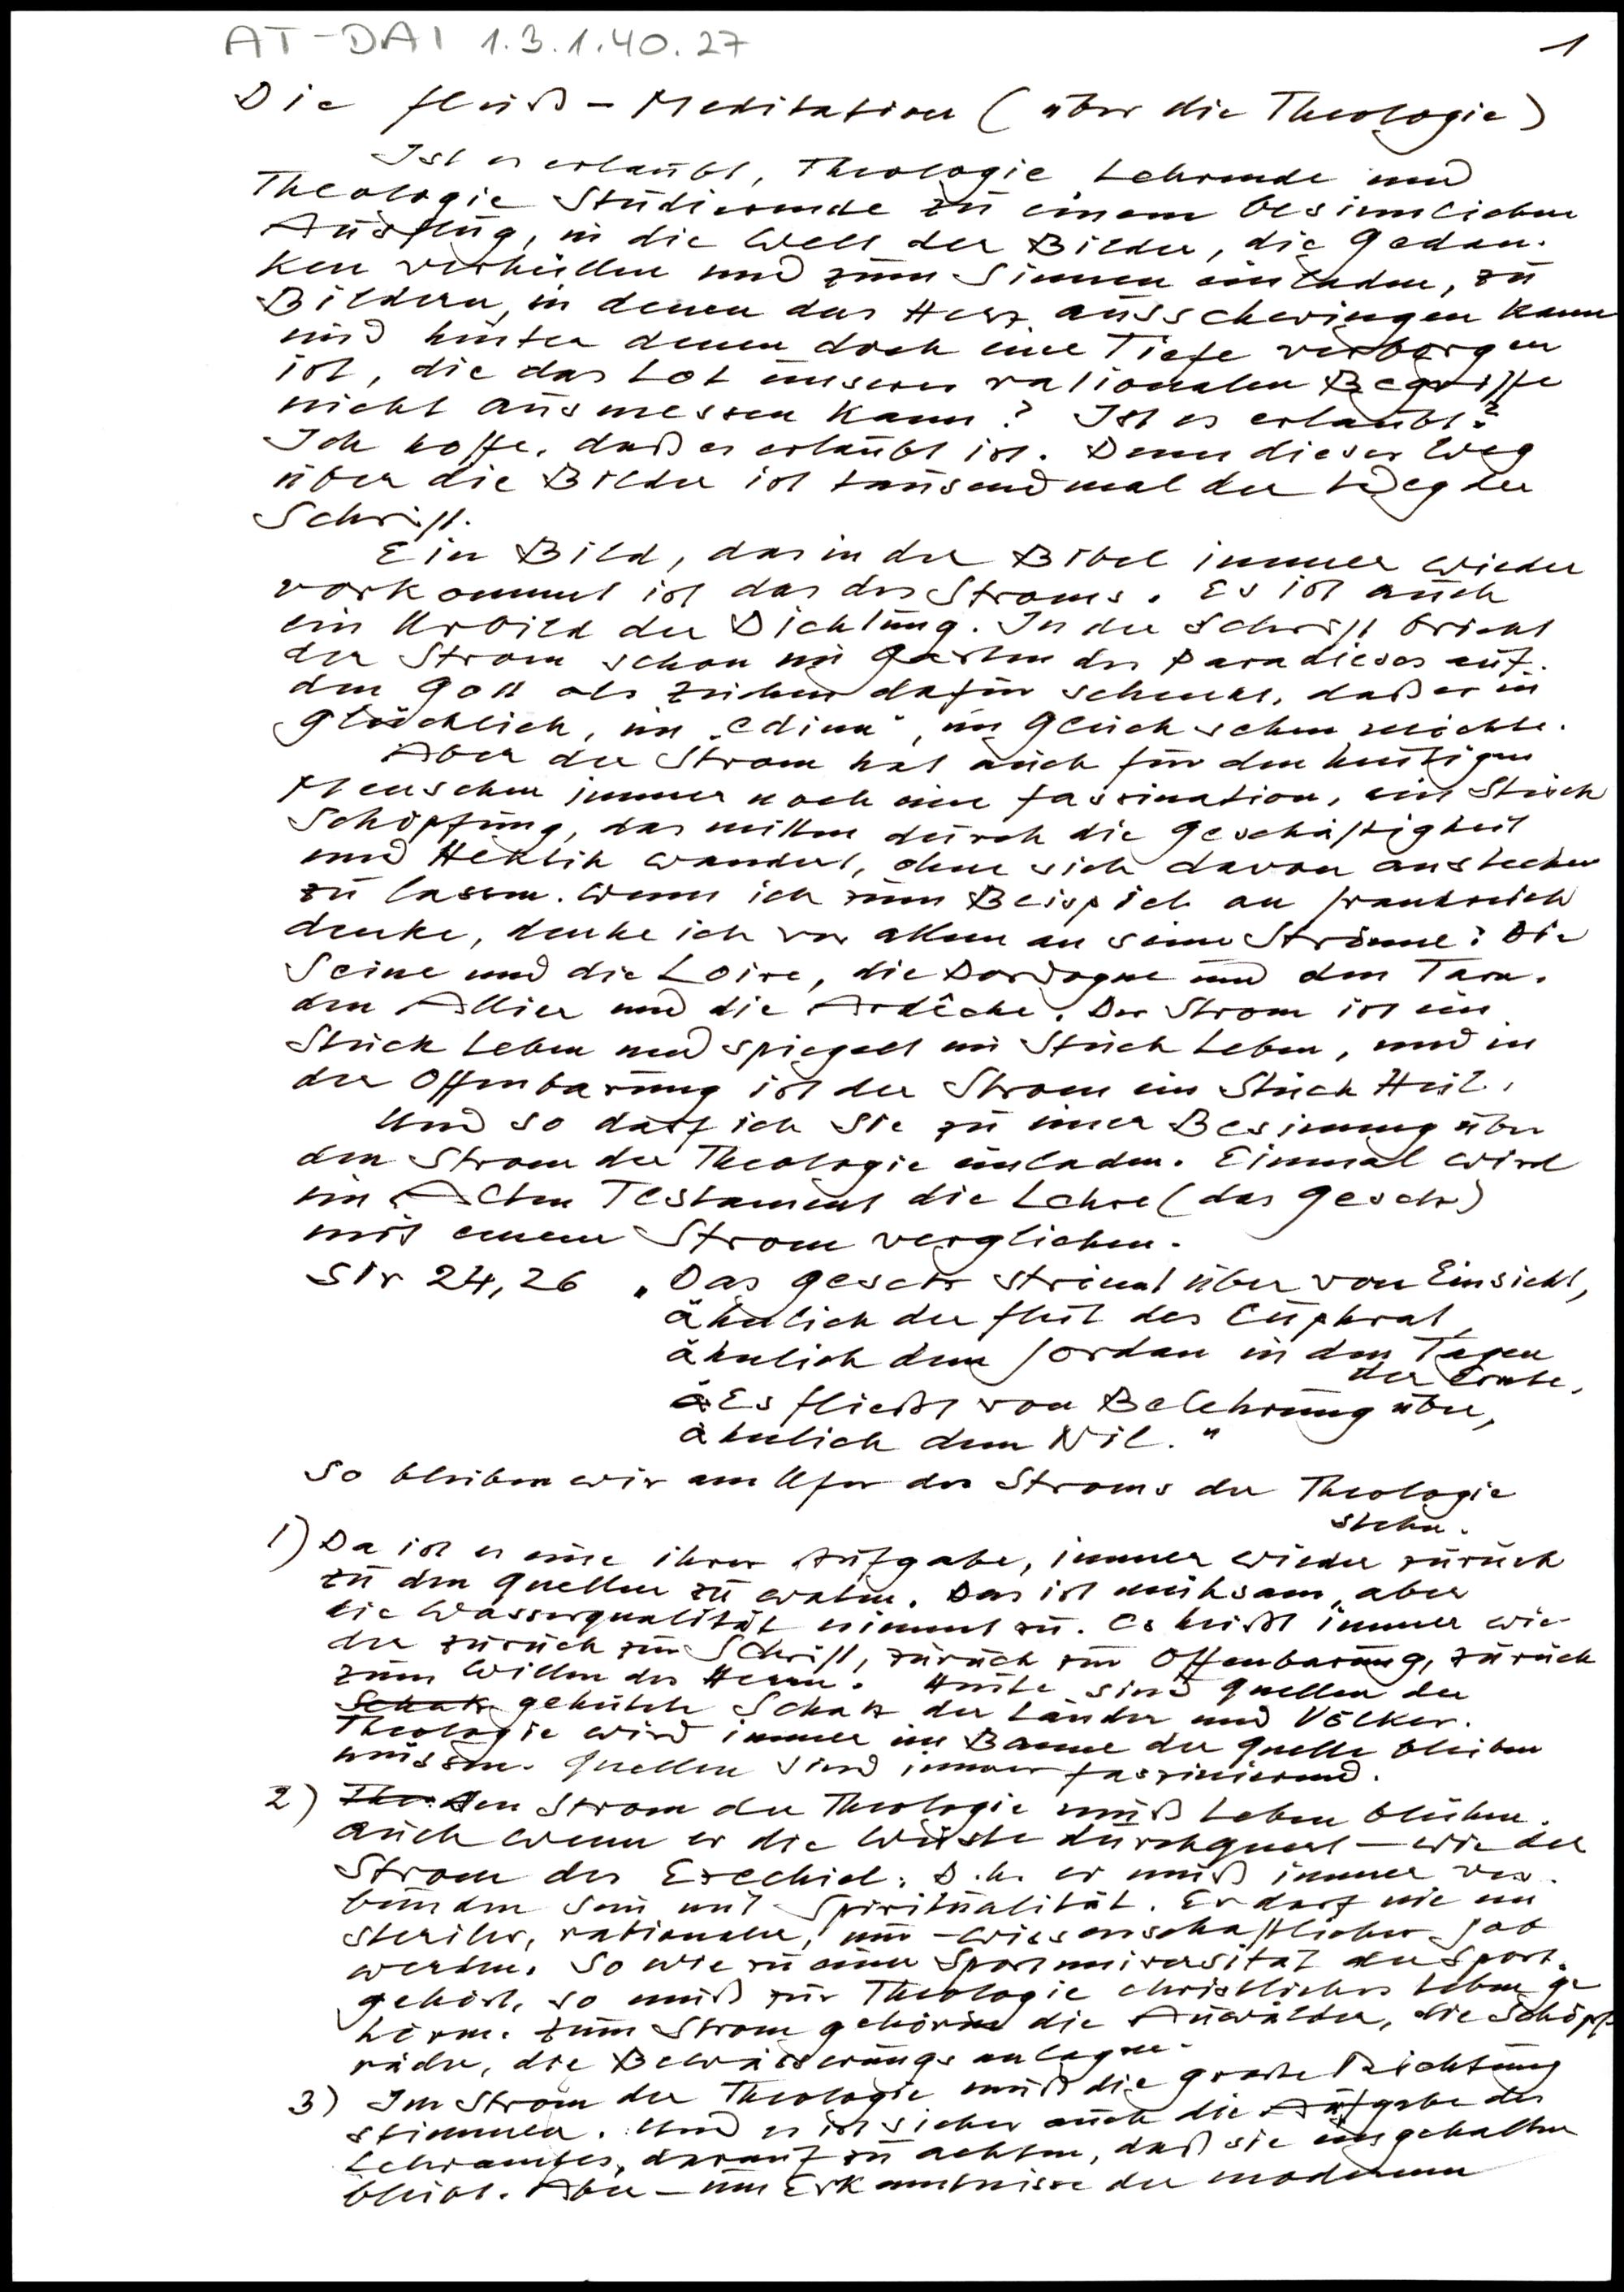 AT-DAI 1.3.1.40.27
1
Die Fluß-Meditation (über die Theologie)
Ist es erlaubt, Theologie Lehrende und
Theologie Studierende zu einem besinnlichen
Ausflug, in die Welt der Bilder, die Gedan-
ken verhüllen und zum Sinnen einladen, zu
Bildern, in denen das Herz ausschwingen kann
und hinter denen doch eine Tiefe verborgen
ist, die das Lot unserer rationalen Begriffe
nicht ausmessen kann? Ist es erlaubt?
Ich hoffe, daß es erlaubt ist. Denn dieser Weg
über die Bilder ist tausendmal der Weg der
Schrift.
Ein Bild, das in der Bibel immer wieder
vorkommt ist das des Stroms. Es ist auch
ein Urbild der Dichtung. In der Schrift bricht
der Strom schon im Garten des Paradieses auf,
den Gott als Zeichen dafür schenkt, daß er ihn
glücklich, im "edinu", im Glück sehen möchte.
Aber der Strom hat auch für den heutigen
Menschen immer noch eine Faszination, ein Stück
Schöpfung, das mitten durch die Geschäftigkeit
und Hektik wandert, ohne sich davon anstecken
zu lassen. Wenn ich zum Beispiel an Frankreich
denke, denke ich vor allem an seine Ströme: Die
Seine und die Loire, die Dordogne und den Tarn,
den Allier und die Ardêche. Der Strom ist ein
Stück Leben und spiegelt ein Stück Leben, und in
der Offenbarung ist der Strom ein Stück Heil.
Und so darf ich Sie zu einer Besinnung über
den Strom der Theologie einladen. Einmal wird
im Alten Testament die Lehre (das Gesetz)
mit einem Strom verglichen.
Sir 24,26 "Das Gesetz strömt über von Einsicht,
ähnlich der Flut des Euphrat,
ähnlich dem Jordan in den Tagen
der Ernte,
ä Es fließt von Belehrung über,
ähnlich dem Nil."
So bleiben wir am Ufer des Stroms der Theologie
stehn.
1) Da ist es eine ihrer Aufgabe, immer wieder zurück
zu den Quellen zu waten. Das ist mühsam, aber
die Wasserqualität nimmt zu. Es heißt immer wie-
der zurück zur Schrift, zurück zur Offenbarung, zurück
zum Willen des Herrn. Heute sind Quellen der
Schatz gehütete Schatz der Länder und Völker.
Theologie wird immer im Banne der Quelle bleiben
müssen. Quellen sind immer faszinierend.
2) Theo. Den Strom der Theologie muß Leben blühen,
auch wenn er die Wüste durchquert – wie der
Strom des Ezechiel. D.h. er muß immer ver-
bunden sein mit Spiritualität. Er darf nie ein
steriler, rationaler, nur-wissenschaftlicher Job
werden. So wie zu einer Sportuniversität der Sport
gehört, so muß zur Theologie christliches Leben ge
hören. Zum Strom gehören die Auwälder, die Schöpf
räder, die Bewässerungsanlagen.
3) Im Strom der Theologie muß die große Richtung
stimmen. Und es ist sicher auch die Aufgabe des
Lehramtes, darauf zu achten, daß sie eingehalten
bleibt. Aber – um Erkenntnisse der modernen